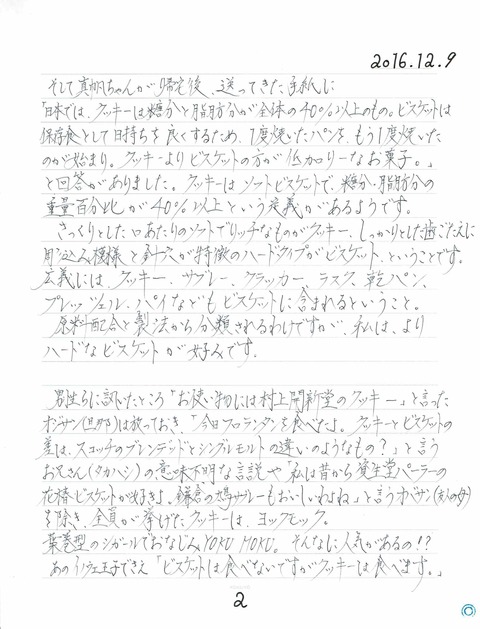 2016.12.9
そして真帆ちゃんが帰宅後、送ってきた手紙に
「日本では、クッキーは糖分と脂肪分が全体の40%以上のもの。ビスケットは
保存食として日持ちを良くするため、1度焼いたパンを、もう1度焼いた
のが始まり。クッキーよりビスケットの方が低カロリーなお菓子。」
と回答がありました。クッキーはソフトビスケットで、糖分・脂肪分の
重量百分比が40%以上という定義があるようです。
さっくりとした口あたりのソフトでリッチなものがクッキー、しっかりとした歯ごたえに
彫込み模様と針穴が特徴のハードタイプがビスケット、ということです。
広義には、クッキー、サブレー、クラッカー、ラスク、乾パン、
プレッツェル、パイなどもビスケットに含まれるということ。
原料配合と製法から分類されるわけですが、私は、より
ハードなビスケットが好みです。
男性らに訊いたところ「お使い物には村上開新堂のクッキー」と言った
オジサン(旦那)は放っておき、「今日フロランタンを食べたよ。クッキーとビスケットの
差は、スコッチのブレンデッドとシングルモルトの違いのようなもの?」と言う
お兄さん(タカハシ)の意味不明な言説や「私は昔から資生堂パーラーの
花椿ビスケットが好きよ、鎌倉の鳩サブレーもおいしいわよね」と言うオバサン(友人の母)
を除き、全員が挙げたクッキーは、ヨックモック。
葉巻型のシガールでおなじみYOKU MOKU。そんなに人気があるの!?
あの王子でさえ「ビスケットは食べないですがクッキーは食べます。」
2